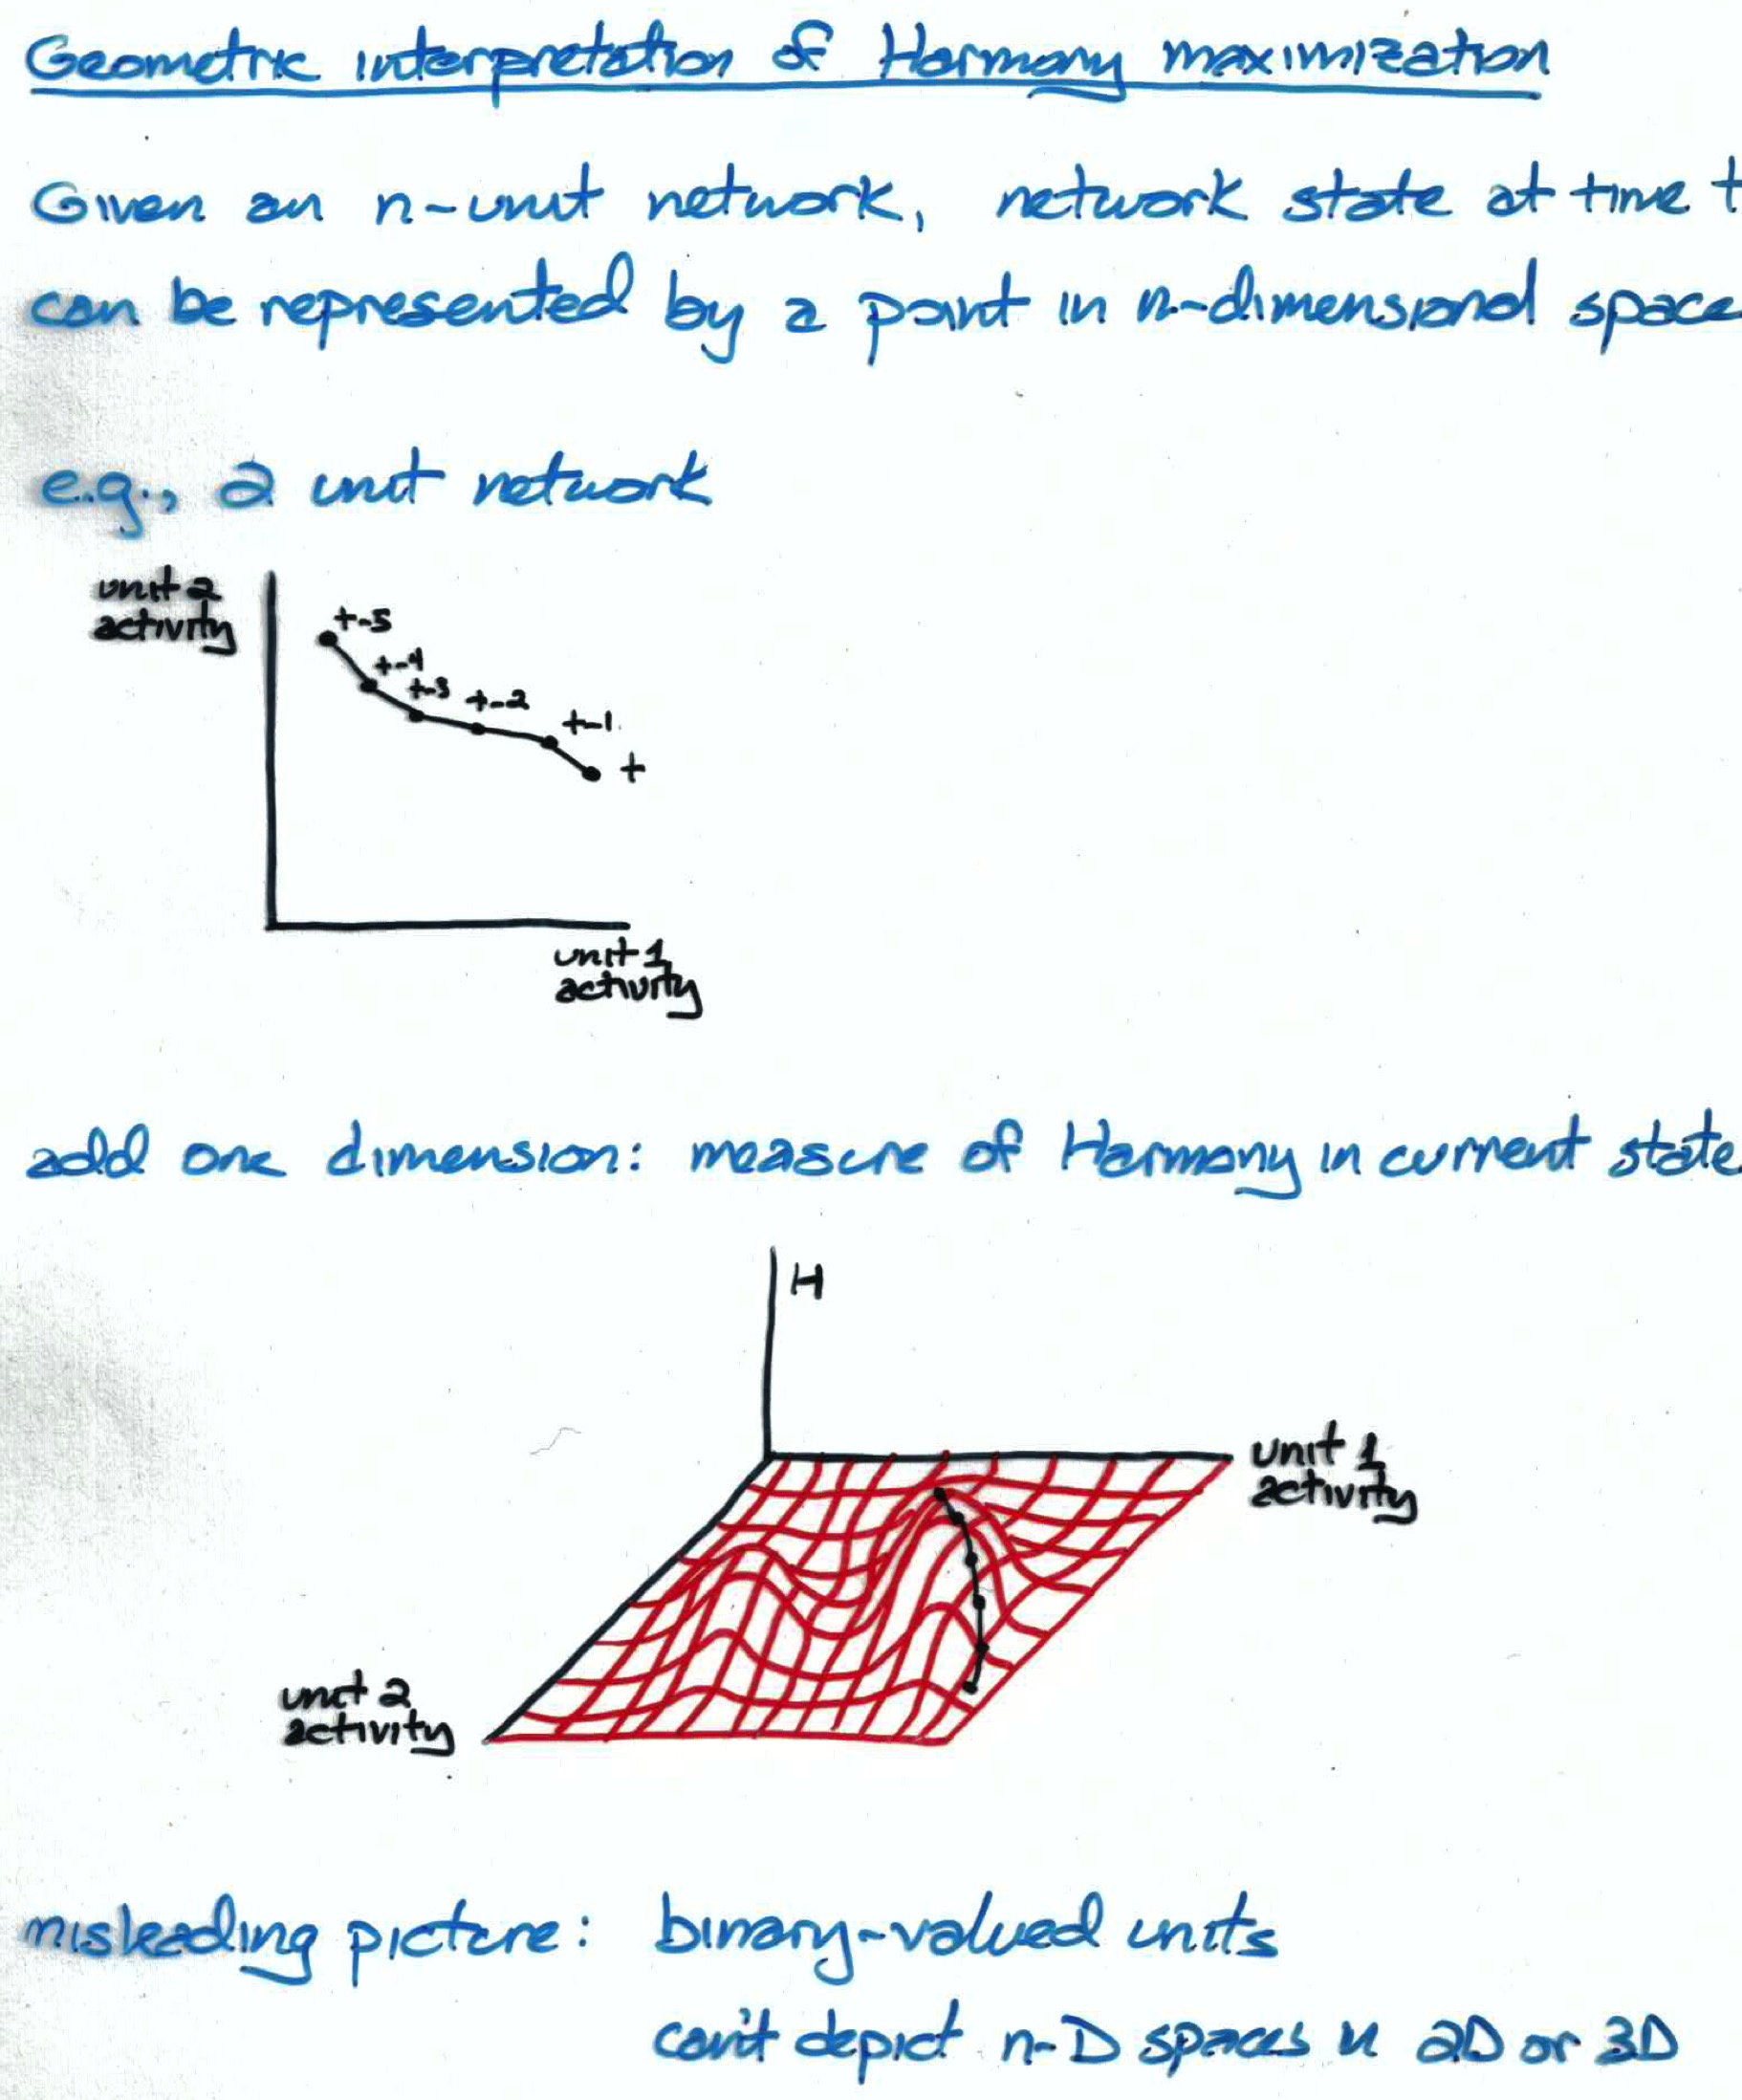 Geometric interpretation of Harmony maximization
Given an n-unit network, network state at time t
can be represented by a point in n-dimensional space
e.g., 2 unit network
unit 2
activity
t-5
t-4
t-3
t-2
t-1
t
unit 1
activity
add one dimension: measure of Harmony in current state
H
unit 1
activity
unit 2
activity
misleading picture: binary-valued units
can't depict n-D spaces in 2D or 3D